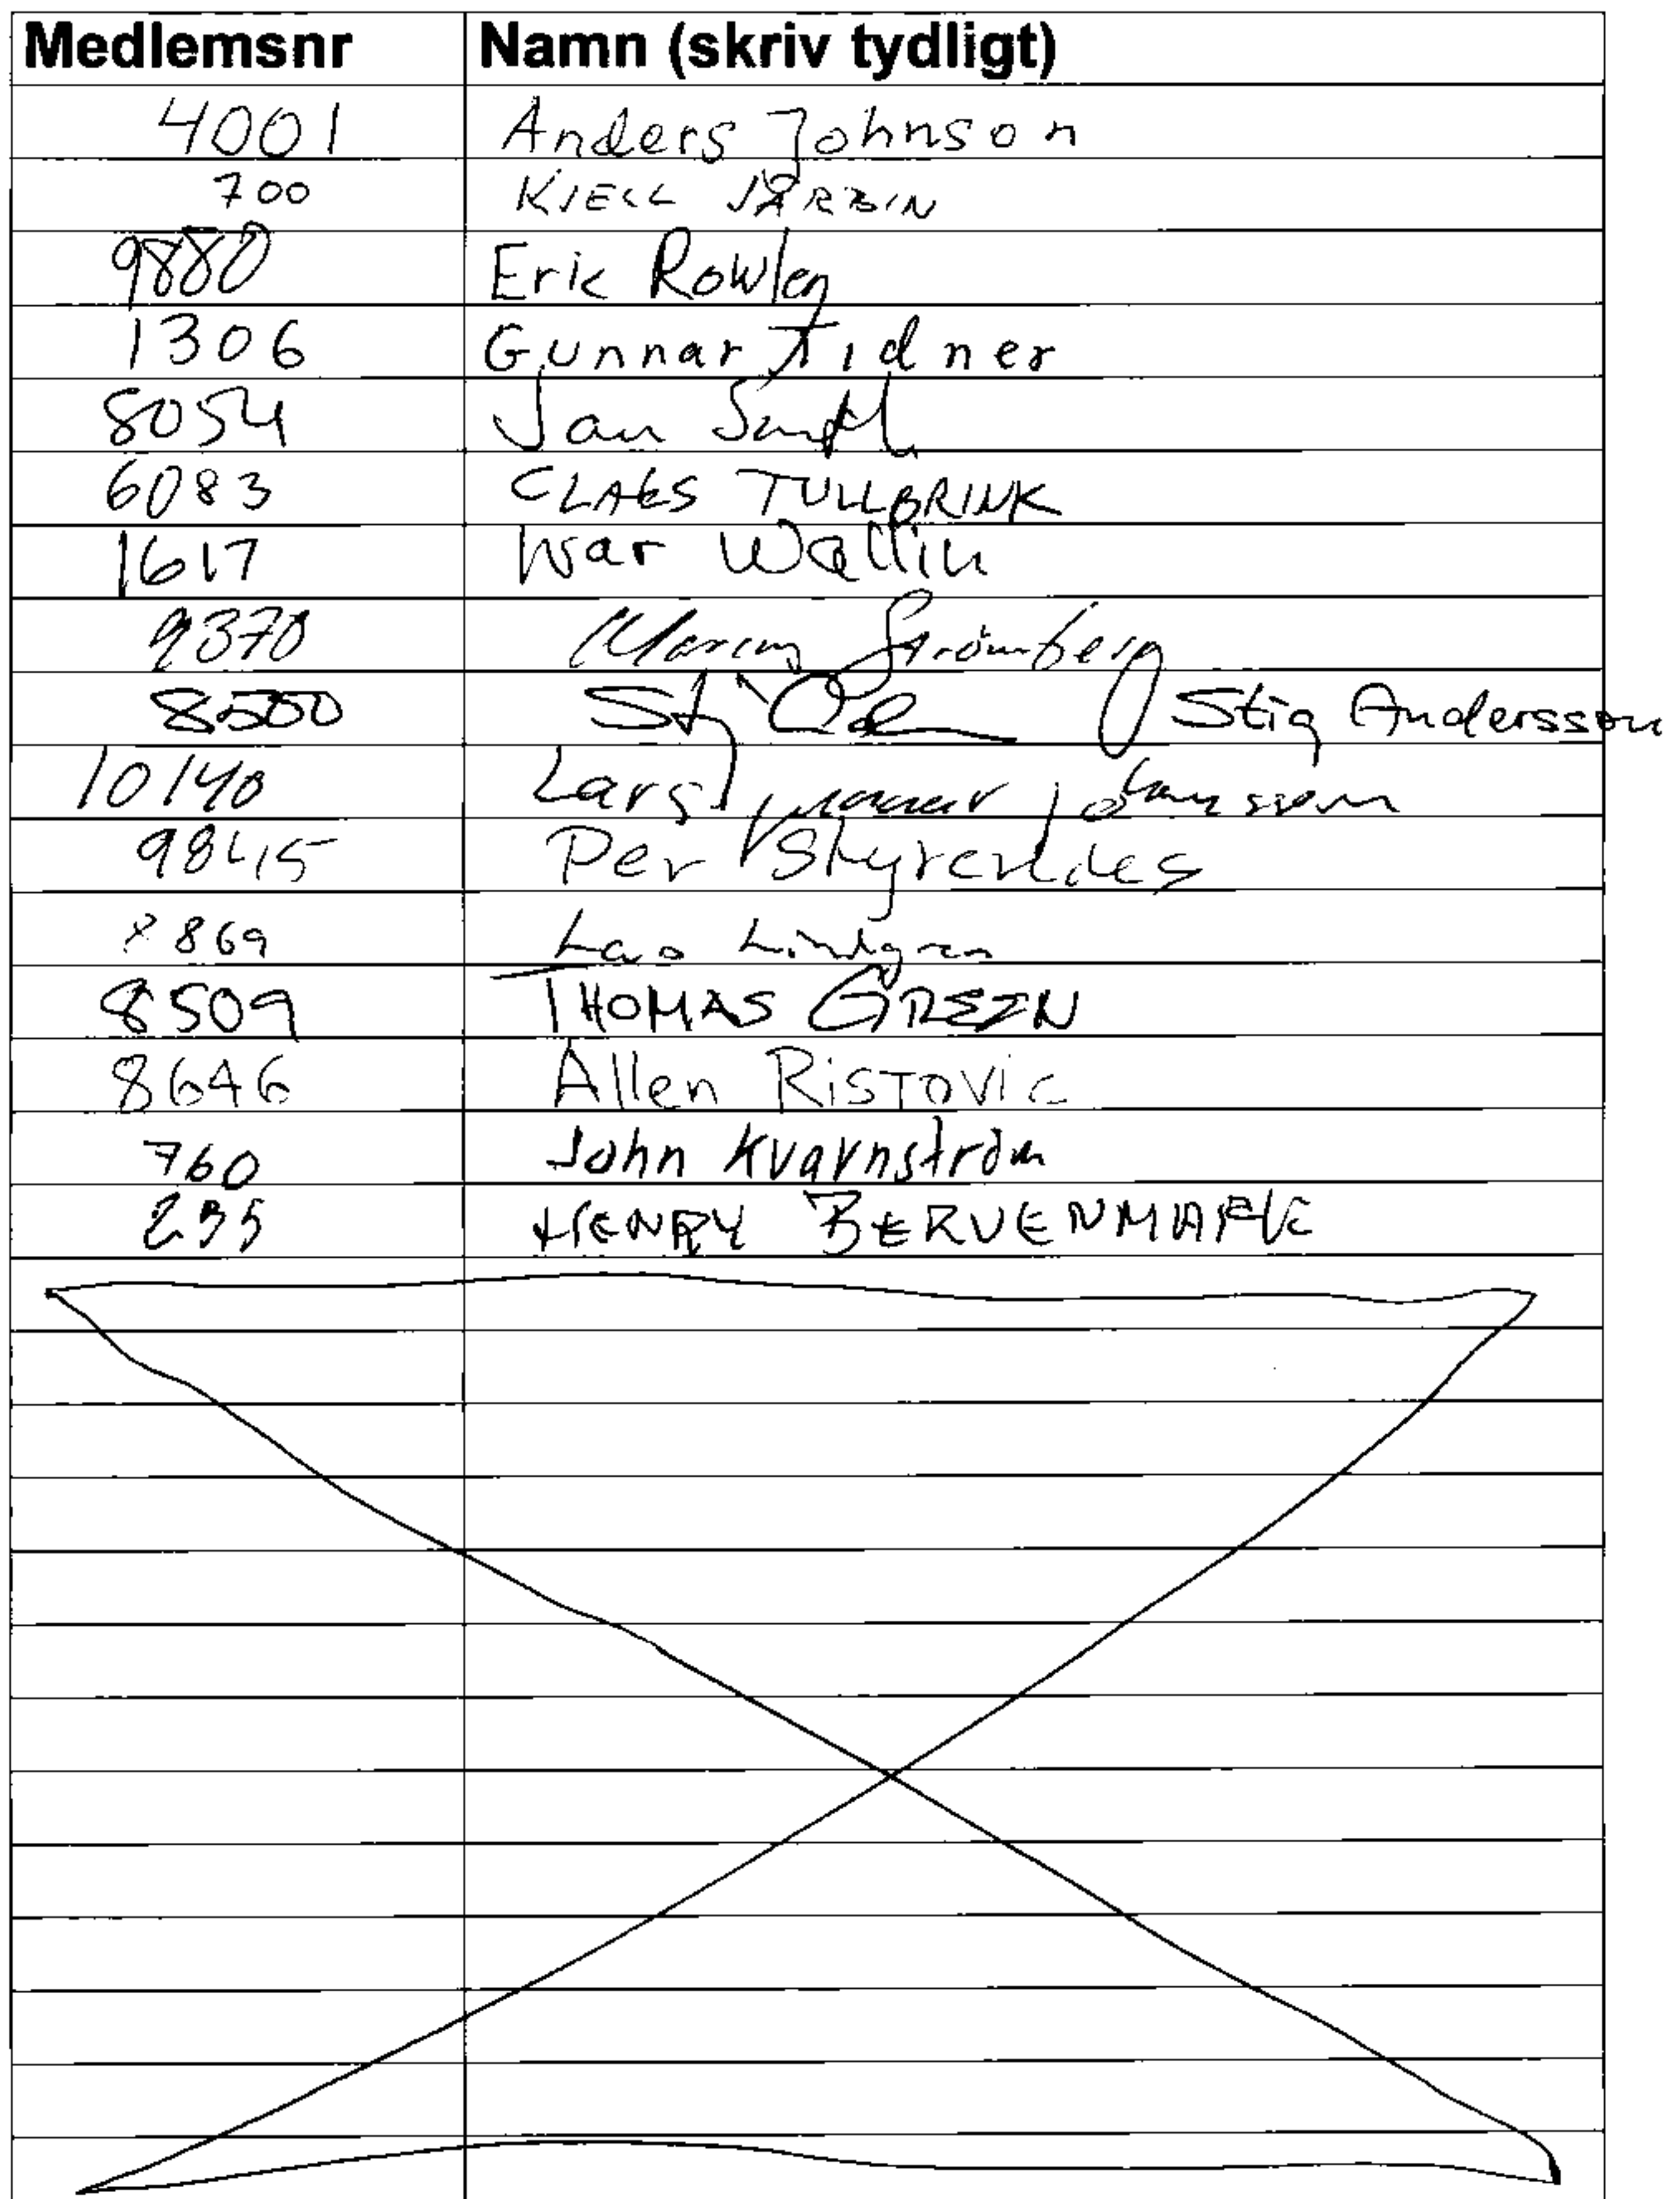 Medlemsnr Namn (skriv tydligt)
4001 Anders Johnson
700 KJELL JÄRBIN
9880 Eric Rowley
1306 Gunnar Tidner
8054 Jan
6083 CLAES TULLBRINK
1617 Ivar Wallin
9370 Strömberg
8500 Stig Andersson
10140 Lars Gunnar Johansson
9845 Per
8869 Lars Lindgren
8509 THOMAS GREEN
8646 Allen RISTOVIC
760 John Kvarnström
HENRY BERVENMARK